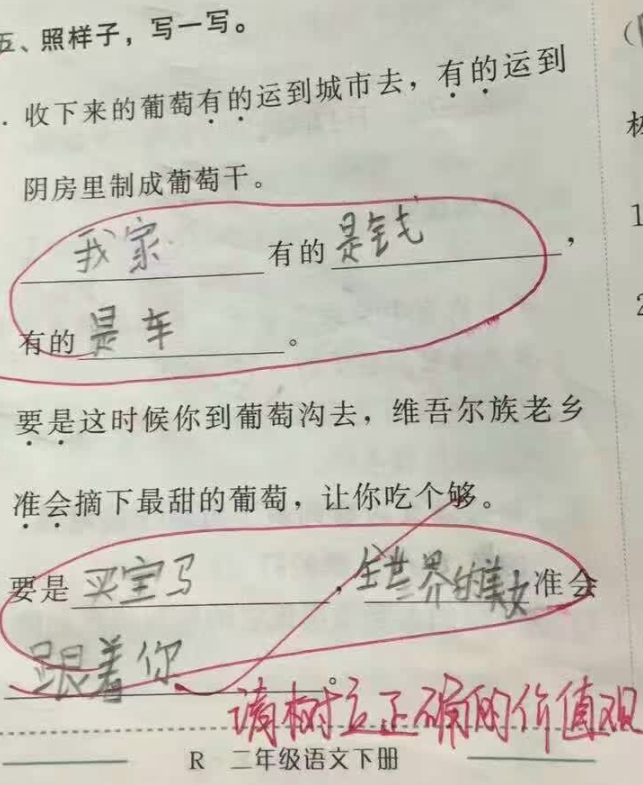 五、照样子，写一写。
. 收下来的葡萄有的运到城市去，有的运到
阴房里制成葡萄干。
我家有的是钱，
有的是车。
要是这时候你到葡萄沟去，维吾尔族老乡
准会摘下最甜的葡萄，让你吃个够。
要是买宝马，全世界的美女准会
跟着你。
请树立正确的价值观
R 二年级语文下册
(
1
2